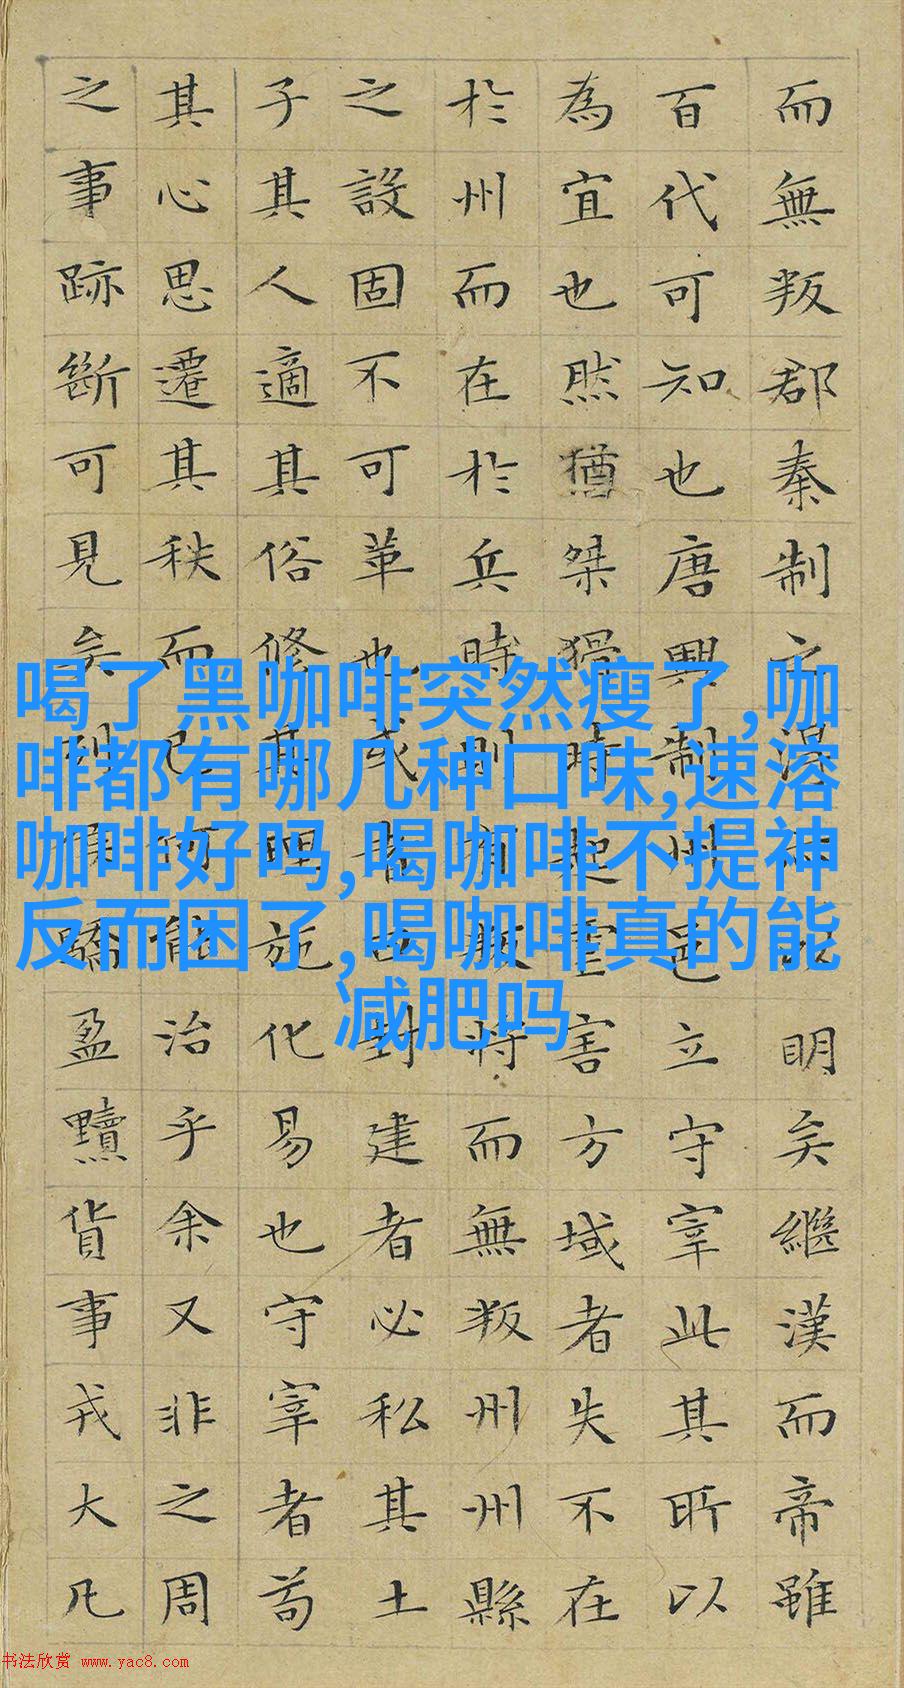 而無叛郡秦制之得亦以明矣繼漢而帝雖
百代可知也唐興制州邑立守宰此其所以
為宜也然猶桀猾時起虐害方域者失不在
於州而在於兵時則有叛將而無叛州州縣
之設固不可革也或者曰封建者必私其土
子其人適其俗修其理施化易也守宰者苟
其心思遷其秩而已何能治乎余又非之周
之事跡斷可見矣列侯驕盈黷貨事戎大凡
喝了黑咖啡突然瘦了,咖
啡都有哪几种口味,速溶
咖啡好吗,喝咖啡不提神
反而困了,喝咖啡真的能
减肥吗
书法欣赏 www.yac8.com